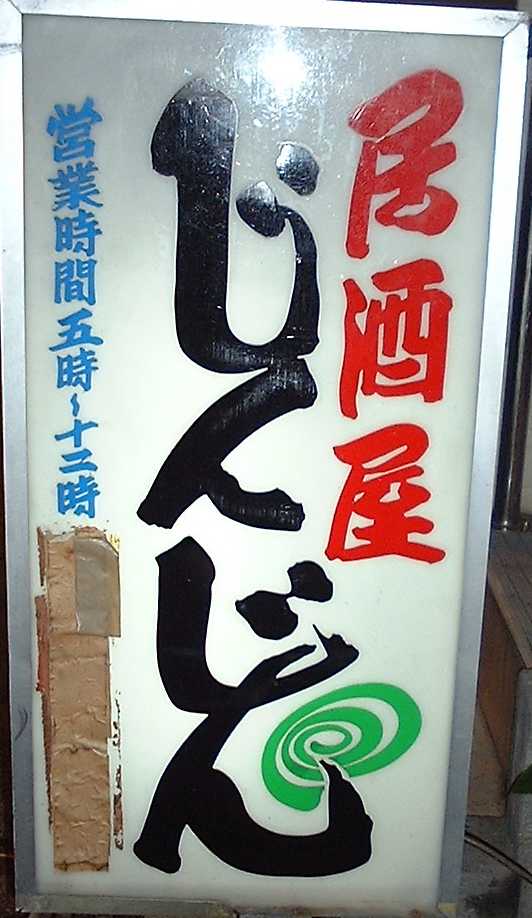 居酒屋
じんじん
営業時間五時~十二時